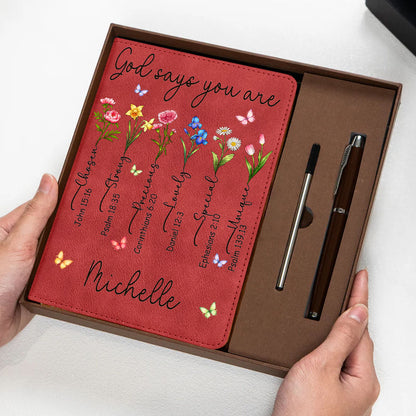 God says you are
Chosen
John 15:16
Strong
Psalm 18:35
Precious
Corinthians 6:20
Lovely
Daniel 12:3
Special
Ephesians 2:10
Unique
Psalm 139:13
Michelle